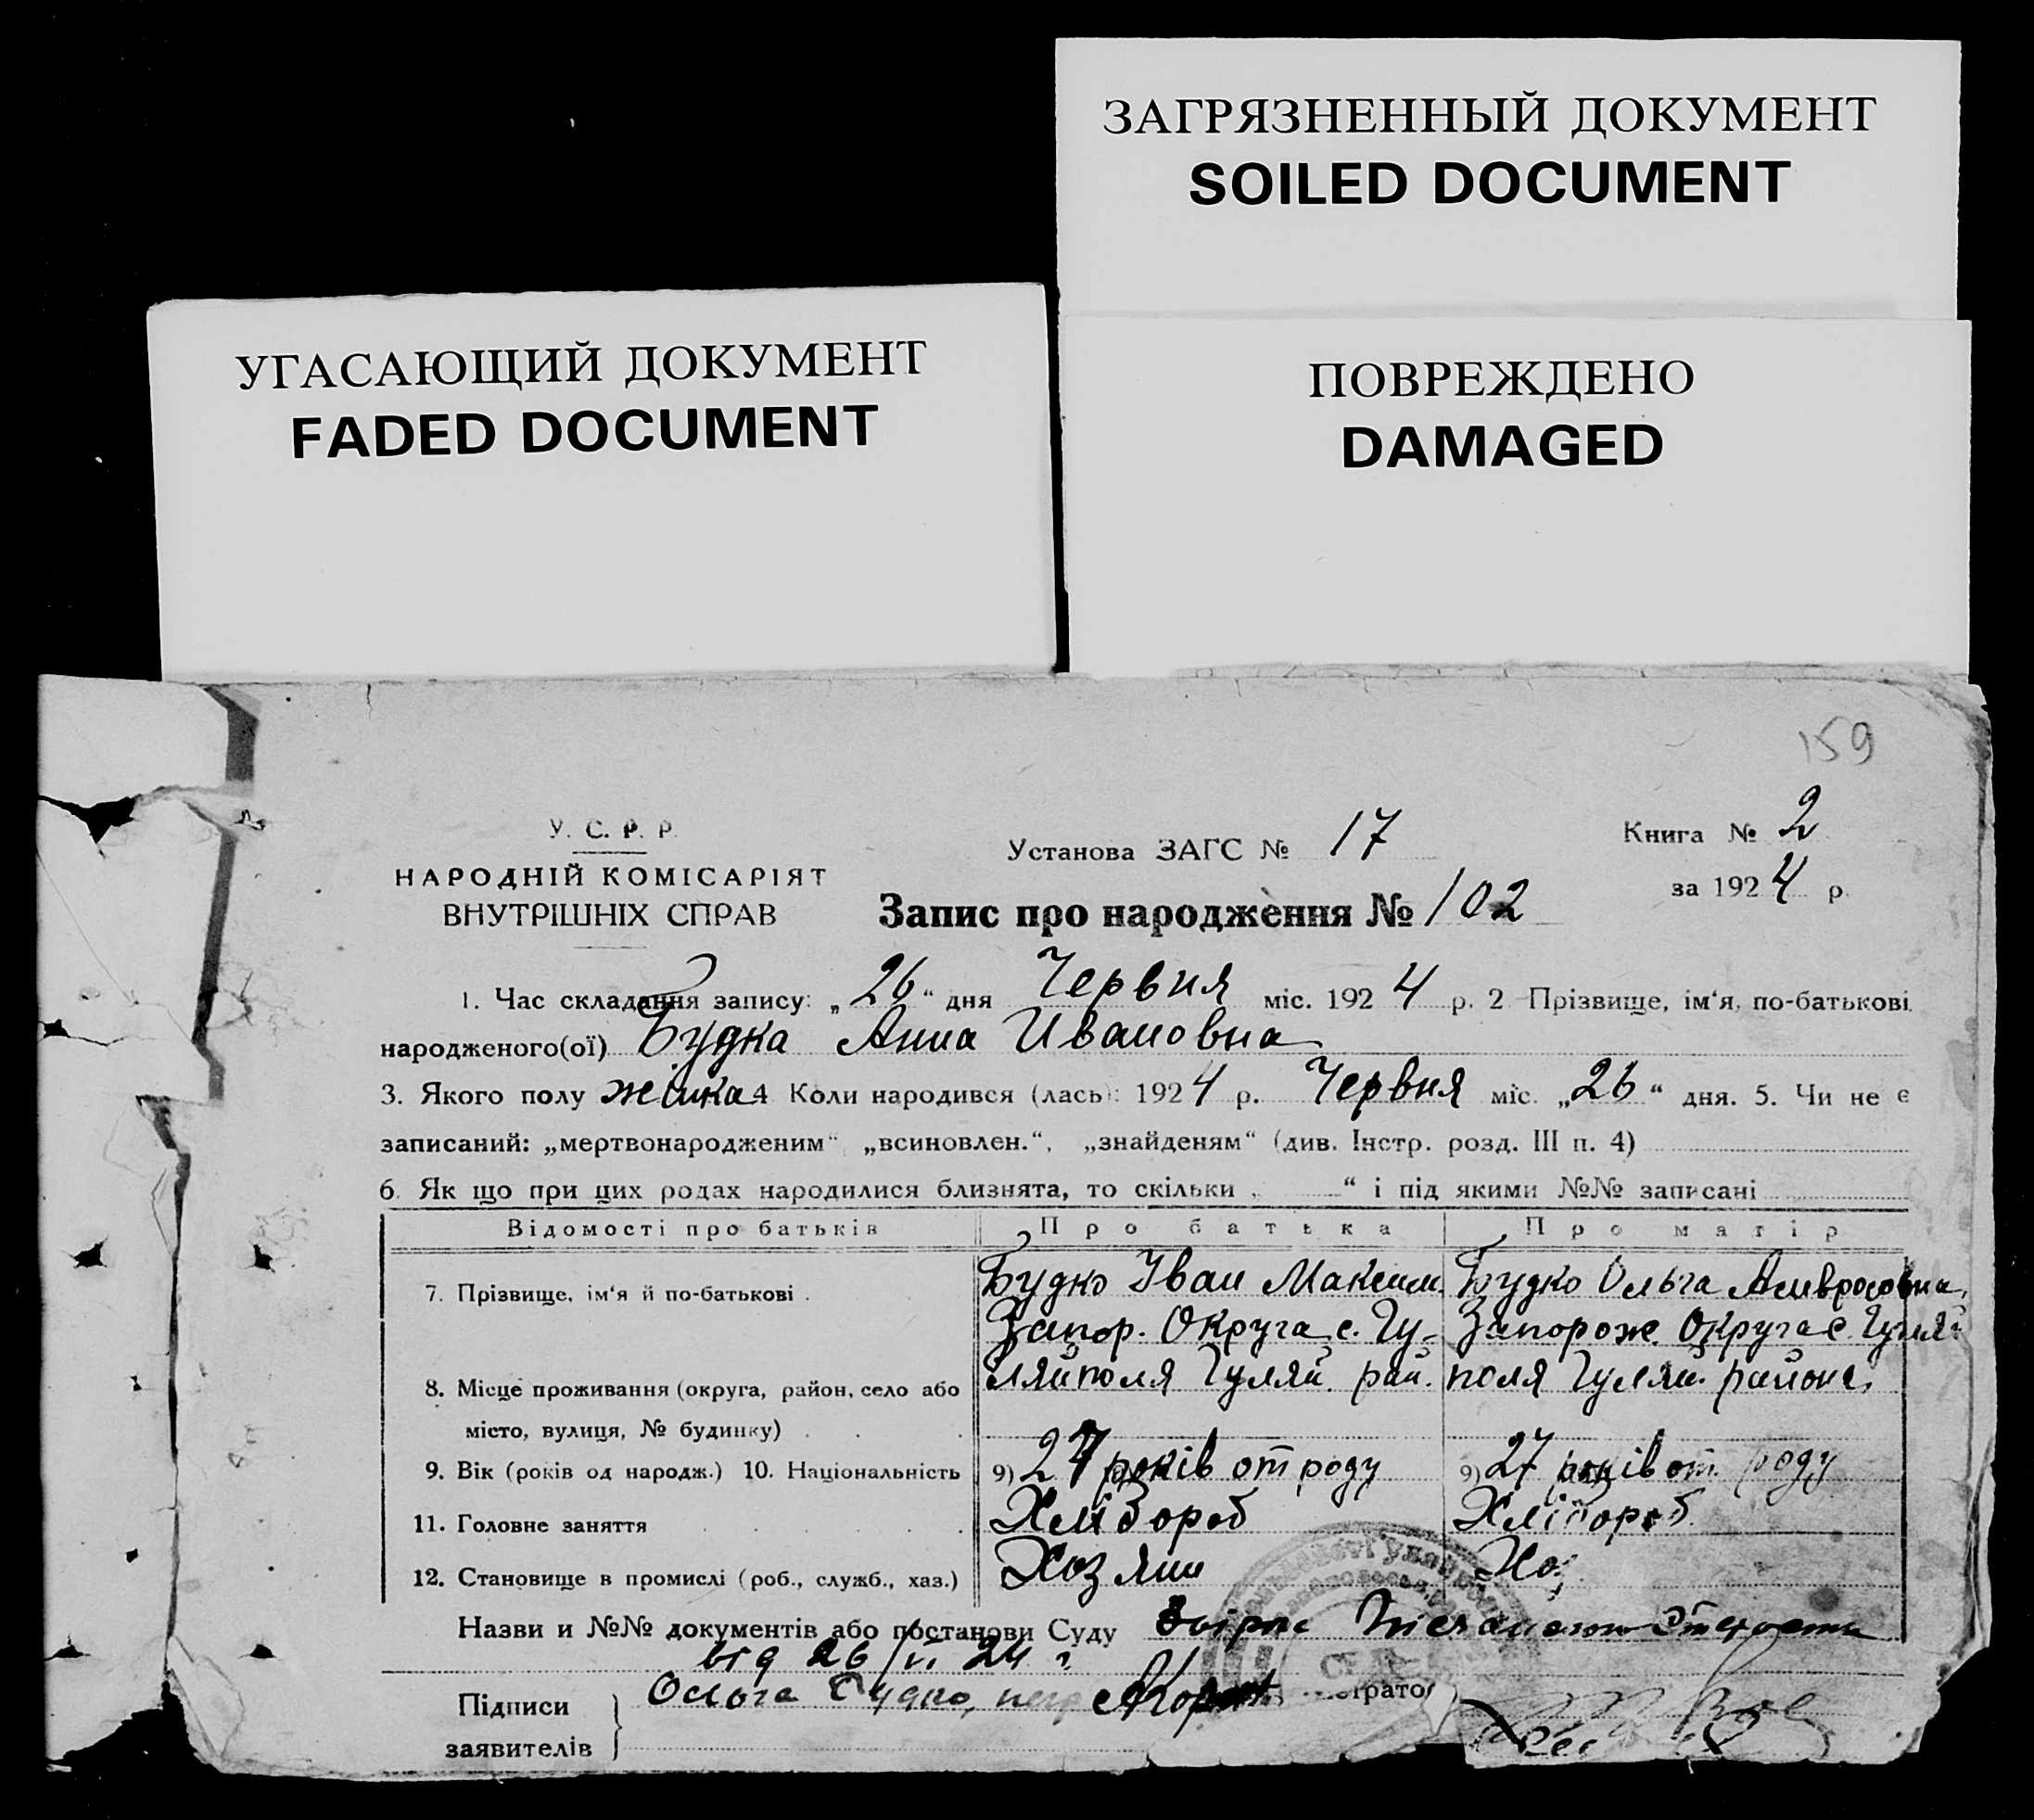 ЗАГРЯЗНЕННЫЙ ДОКУМЕНТ
SOILED DOCUMENT
УГАСАЮЩИЙ ДОКУМЕНТ
FADED DOCUMENT
ПОВРЕЖДЕНО
DAMAGED
159
У. С. Р. Р.
НАРОДНІЙ КОМІСАРІЯТ
ВНУТРІШНІХ СПРАВ
Установа ЗАГС № 17
Книга № 2
за 1924 р.
Запис про народження № 102
1. Час складання запису: „26“ дня Червня міс. 1924 р. 2 Прізвище, ім‘я, по-батькові
народженого(ої) Будка Анна Ивановна
3. Якого полу жінка 4 Коли народився (лась): 1924 р. Червня міс. „26“ дня. 5. Чи не є
записаний: „мертвонародженим“, „всиновлен.“, „знайденям“ (див. Інстр. розд. III п. 4)
6. Як що при цих родах народилися близнята, то скільки „ —“ і під якими №№ записані
Відомості про батьків Про батька Про матір
7. Прізвище, ім‘я й по-батькові . Будко Іван Максим. Будко Ольга Амвросовна,
Запор. Округа с. Гу- Запорож. Округа с. Гуляй
8. Місце проживання (округа, район, село або ляйполя Гуляй. рай. поля Гуляй. района.
місто, вулиця, № будинку) . . .
9. Вік (років од народж.) 10. Національність 9) 27 років от роду 9) 27 років от роду
11. Головне заняття . . . . . . Хлібороб Хлібороб
12. Становище в промислі (роб., служб., хаз.) Хозяин Хоз
Назви и №№ документів або постанови Суду
від 26/VI 24 г.
Підписи Ольга Будко,
заявителів